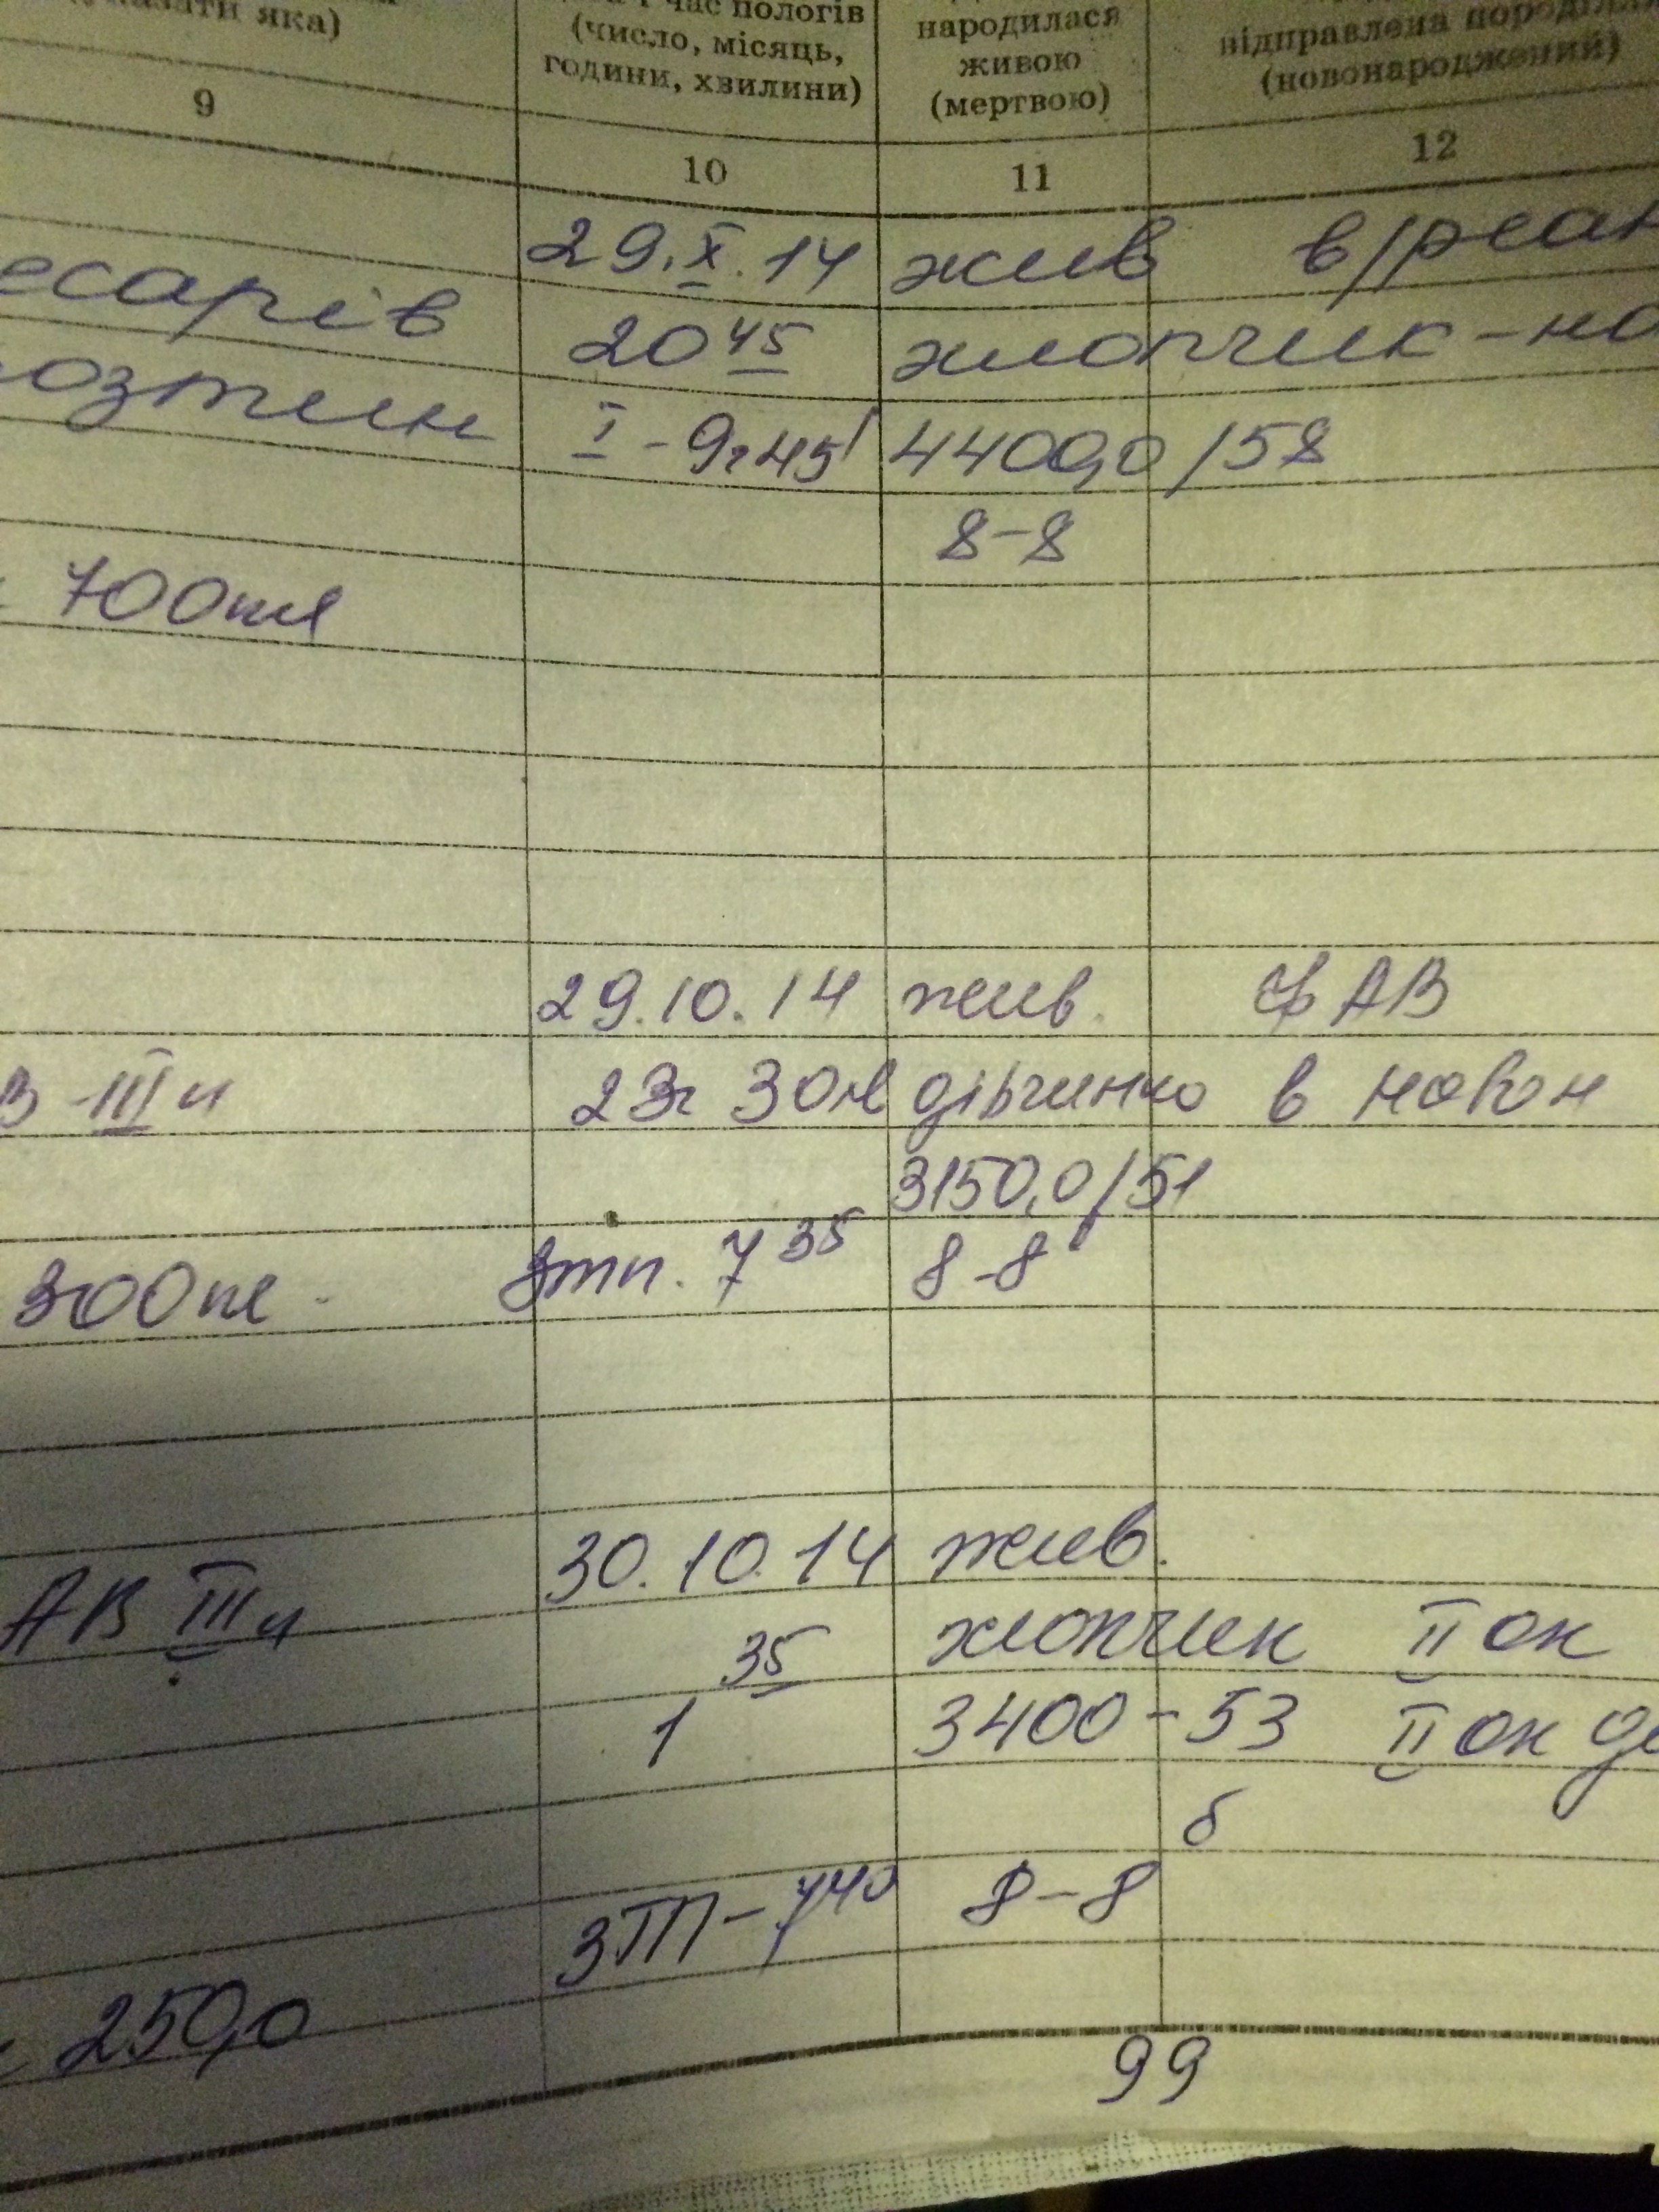 яка)
час пологів
(число, місяць,
години, хвилини)
народилася
живою
(мертвою)
відправлена породілля
(новонароджений)
9
10
11
12
29.X.14 жив в/реан
есарів
20 45 хлопчик - но
озтин
I - 9г 45' 4400,0 / 58
8-8
700мл
29.10.14 жив. АВ
В III п 23г 30м дівчинка в новон
3150,0 / 51
300мл. 7 35 8-8
30.10.14 жив.
АВ III п хлопчик II ок
1 35
3400 - 53 II ок
б
ЗТП - 7 40 8-8
250,0
99